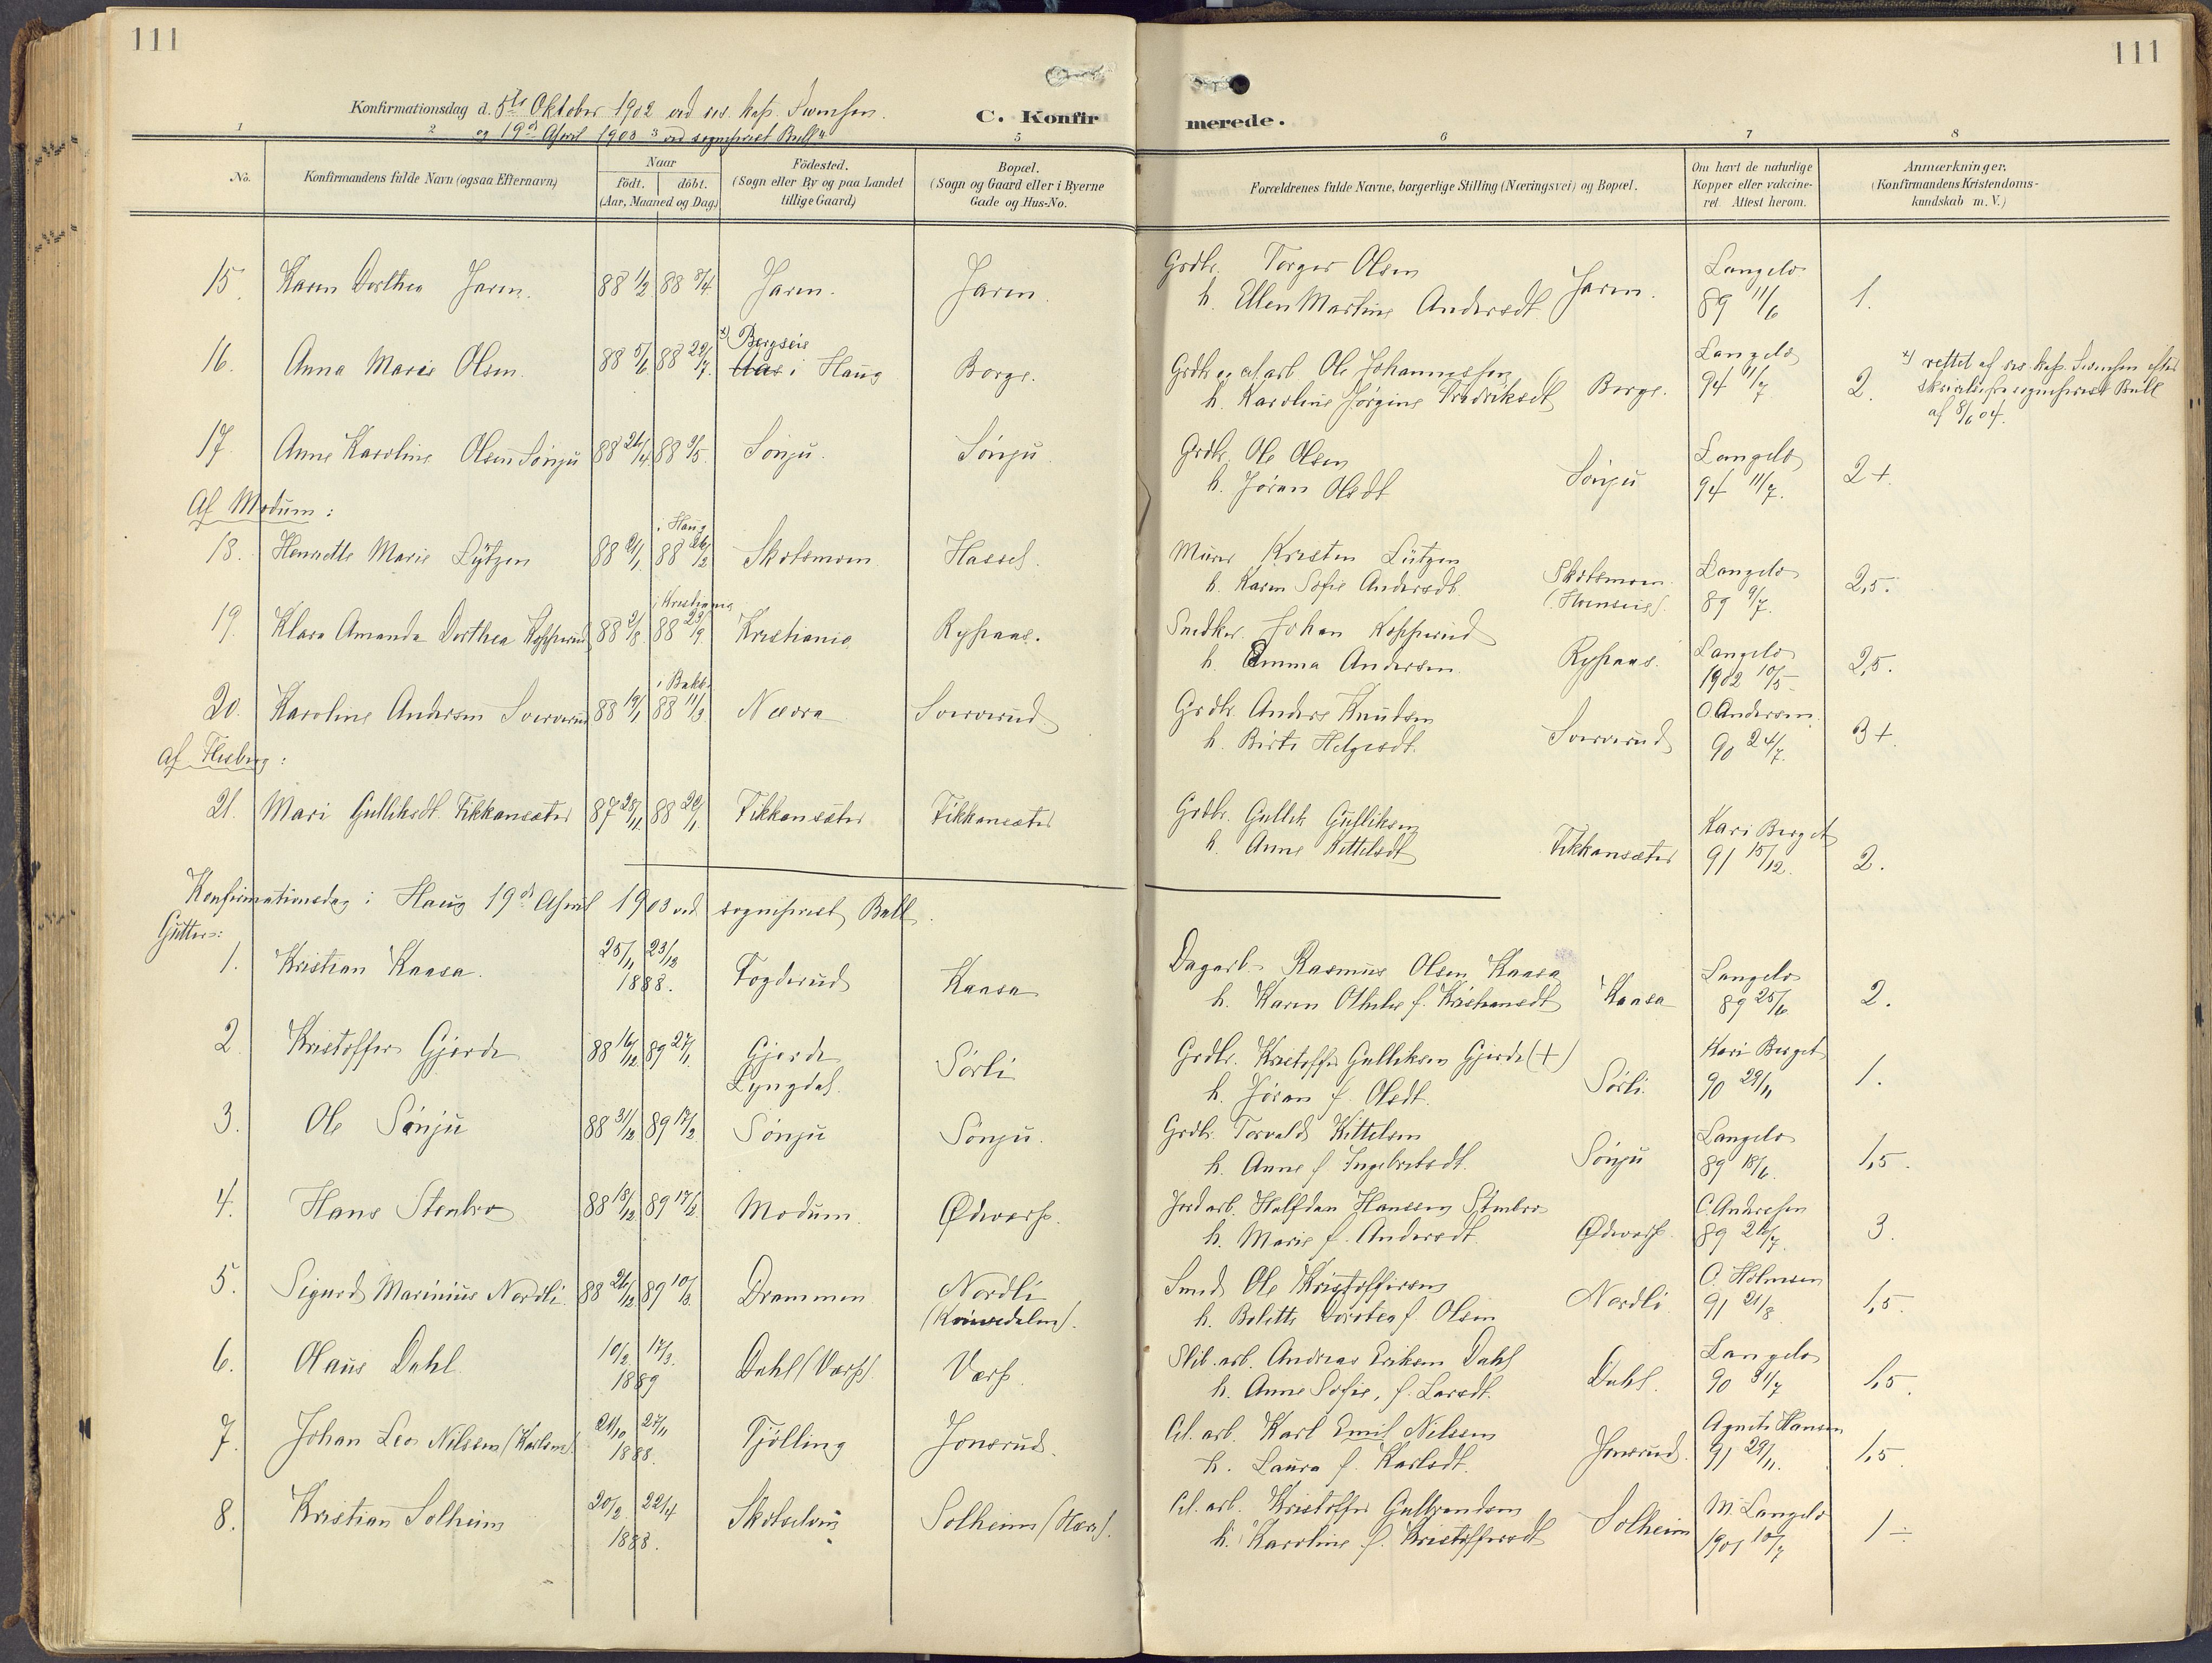 111
111
Konfirmationsdag d. 5te Oktober 1902 ved res. kap. Svensen.
og 19de April 1903 ved sogneprest Bull
C. Konfirmerede.
1 2 3 4 5 6 7 8
No.
Konfirmandens fulde Navn (ogsaa Efternavn)
Naar
födt. döbt.
(Aar, Maaned og Dag)
Födested.
(Sogn eller By og paa Landet
tillige Gaard)
Bopæl.
(Sogn og Gaard eller i Byerne
Gade og Hus-No.
Forældrenes fulde Navne, borgerlige Stilling (Næringsvei) og Bopæl.
Om havt de naturlige
Kopper eller vakcine-
ret Attest herom.
Anmærkninger.
(Konfirmandens Kristendoms-
kundskab m. V.)
15. Karen Dorthea Jaren. 88 11/2 88 8/4 Jaren. Jaren. Grdbr. Torger Olsen
h. Ellen Martine Andersdt. Jaren. Langelo 89 11/6 1.
16. Anna Marie Olsen. 88 5/6 88 22/7. x) Bergseie
Aas i Haug Borge. Grdbr og cel.arb Ole Johannessen
h. Karoline Jörgine Fredriksdt Borge. Langelo 94 11/7 2. x) rettet af res. kap. Svensen efter
skrivelse fra sogneprest Bull
af 8/6 04.
17. Anne Karoline Olsen Sönju 88 26/4 88 9/5. Sönju. Sönju. Grdbr. Ole Olsen
h. Jöran Olsdt Sönju Langelo 94 11/7. 2+.
Af Modum:
18. Henriette Marie Lytzen 88 21/1 i Haug 88 26/12 Skotsmoen Hassel. Murer Kristen Lützen
h. Karen Sofie Andersdt. Skotsmoen Langelo 89 9/7. 2,5.
19. Klara Amanda Dorthea Kopperud 88 2/8 i Kristiania 88 23/9. Kristiania Rypaas. Snedker. Johan Kopperud
h. Emma Andersen. Rypaas. Langelo 1902 10/5 2,5.
20. Karoline Andersen Soverud 88 19/1 i Bakk. 88 11/3 Nævra Soverud Grdbr. Anders Knudsen
h. Birte Helgesdt. Soverud O. Andersen. 90 24/7. 3+.
af Flesberg:
21. Mari Gulliksdt. Fikkansæter 87 28/11. 88 29/1. Fikkansæter Fikkansæter Grdbr. Gullik Gulliksen
h. Anne Kittelsdt Fikkansæter Kari Berget 91 15/12. 2.
Konfirmationsdag i Haug 19de April 1903 ved sogneprest Bull.
Gutter:
1. Kristian Kaasa. 25/11 23/12 1888. Fogderud Kaasa Dagarb. Rasmus Olsen Kaasa
h. Karen Othilie f. Kristiansdt Kaasa Langelo 89 25/6 2.
2. Kristoffer Gjerde 88 16/12 89 27/1. Gjerde
Lyngdal. Sörli Grdbr. Kristoffer Gulliksen Gjerde (+)
h. Jöran f. Olsdt. Sörli. Kari Berget 90 29/11 1.
3. Ole Sönju 88 31/12 89 17/2. Sönju Sönju. Grdbr. Torvald Kittelsen
h. Anne f. Ingebretsdt. Sönju Langelo 89 18/6. 1,5.
4. Hans Stenbro 88 18/12 89 17/3. Modum. Ødeverp. Jordarb. Halfdan Hansen Stenbro
h. Marie f. Andersdt. Ødeverp. C. Andresen 89 26/7. 3.
5. Sigurd Marinius Nordli. 88 26/12 89 10/3. Drammen Nordli
Smed Ole Kristoffersen
h. Bolette Dorotea f. Olsen Nordli O. Holmsen 91 21/8 1,5.
6. Olaus Dahl. 10/2. 17/3. 1889 Dahl (Verp). Verp. Slib.arb. Andreas Eriksen Dahl
h. Anne Sofie, f. Larsdt. Dahl. Langelo 90 31/7 1,5.
7. Johan Leo Nilsen (Karlsen) 21/10 25/11 1888. Tjölling Jonsrud. Cel. arb. Karl Emil Nilsen
h. Laura f. Karlsdt. Jonsrud. Agnete Hansen 91 29/11. 1,5.
8. Kristian Solheim 20/2. 22/4 1888. Skotselven Solheim Cel. arb. Kristoffer Gulbrandsen
h. Karoline f. Kristoffersdt Solheim M. Langelo 1901 10/7 1÷